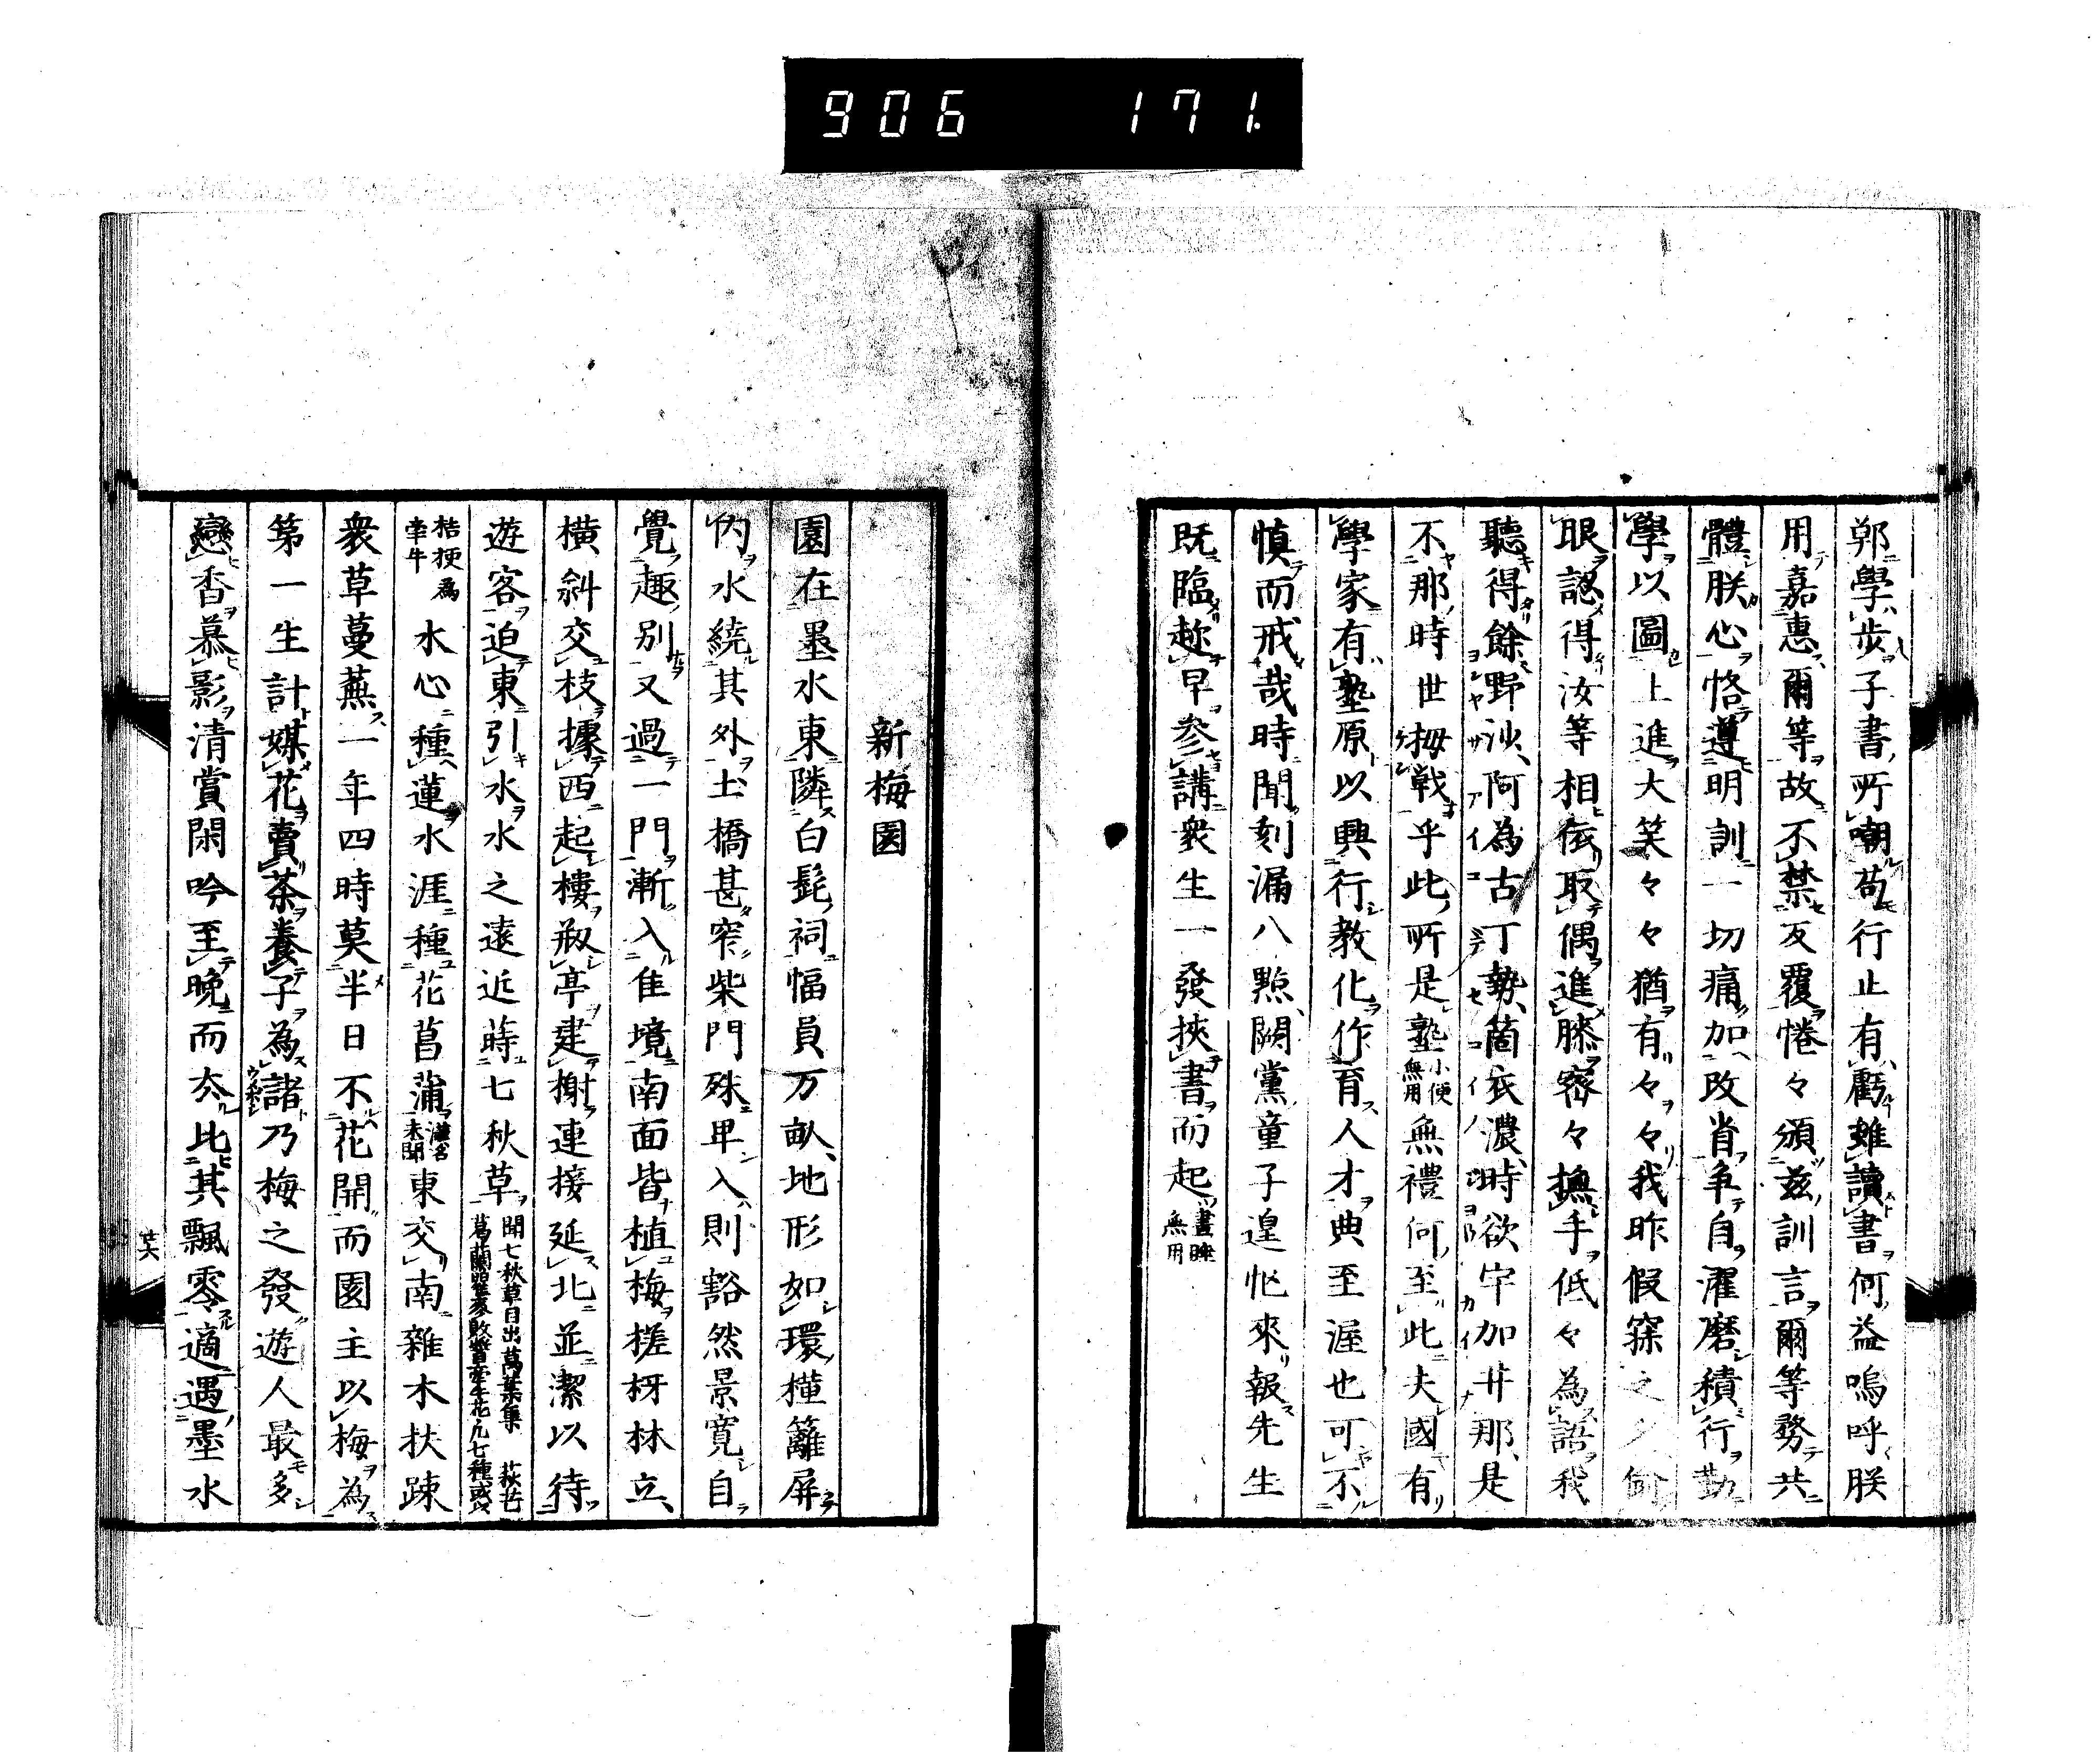 906 171
鄲學歩子書所嘲苟行止有虧雖讀書何益嗚呼朕
用嘉惠爾等故不禁反覆惓々頒茲訓言爾等務共
體朕心恪遵明訓一切痛加改省爭自濯磨積行勤
學以圖上進大笑々々猶有々々我昨假寐之夕偷
眼認得汝等相依取偶進膝密々撫手低々為語我
聽得餘野沙阿為古丁勢箇衣濃時欲宇加井那是
不那時世拇戰乎此所是塾小便無用無禮何至此夫國有
學家有塾原以興行教化作育人才典至渥也可不
慎而戒哉時聞刻漏八點闕黨童子遑忙來報先生
既臨趂早參講衆生一發挾書而起晝睡無用
新梅園
園在墨水東隣白髭祠幅員万畝地形如環槿籬屏
內水繞其外土橋甚窄柴門殊卑入則豁然景寛自
覺趣別又過一門漸入佳境南面皆植梅槎枒林立
橫斜交枝據西起樓敞亭建榭連接延北並潔以待
遊客迫東引水水之遠近蒔七秋草聞七秋草目出萬葉集 萩芒葛蘭瞿麥敗醬牽牛花凡七種或以
桔梗為牽牛水心種蓮水涯種花菖蒲漢名未聞東交南雜木扶疎
衆草蔓蕪一年四時莫半日不花開而園主以梅為
第一生計媒花賣茶養子為諸乃梅之發遊人最多
戀香慕影清賞閑吟至晩而厺比其飄零適遇墨水
廿六